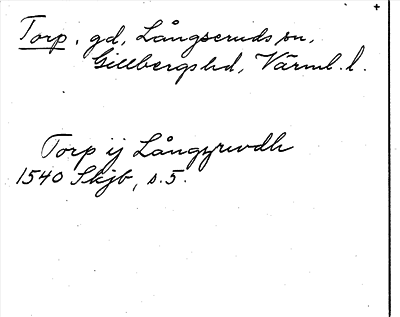 Torp, gd, Långseruds sn,
Gillbergs hd, Värml. l.
Torp ij Långzrwdh
1540 Skjb, s. 5.